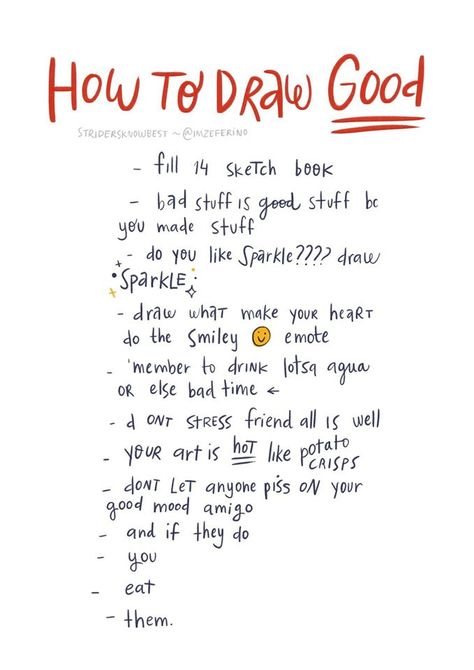 HOW TO DRAW GOOD
STRIDERSKNOWBEST ~ @IMZEFERINO
- fill 14 sketch book
- bad stuff is good stuff bc
you made stuff
- do you like sparkle???? draw
SparkLE
- draw what make your heart
do the smiley 🙂 emote
- 'member to drink lotsa agua
or else bad time ←
- dont stress friend all is well
- your art is hot like potato
crisps
- dont let anyone piss on your
good mood amigo
- and if they do
- you
- eat
- them.